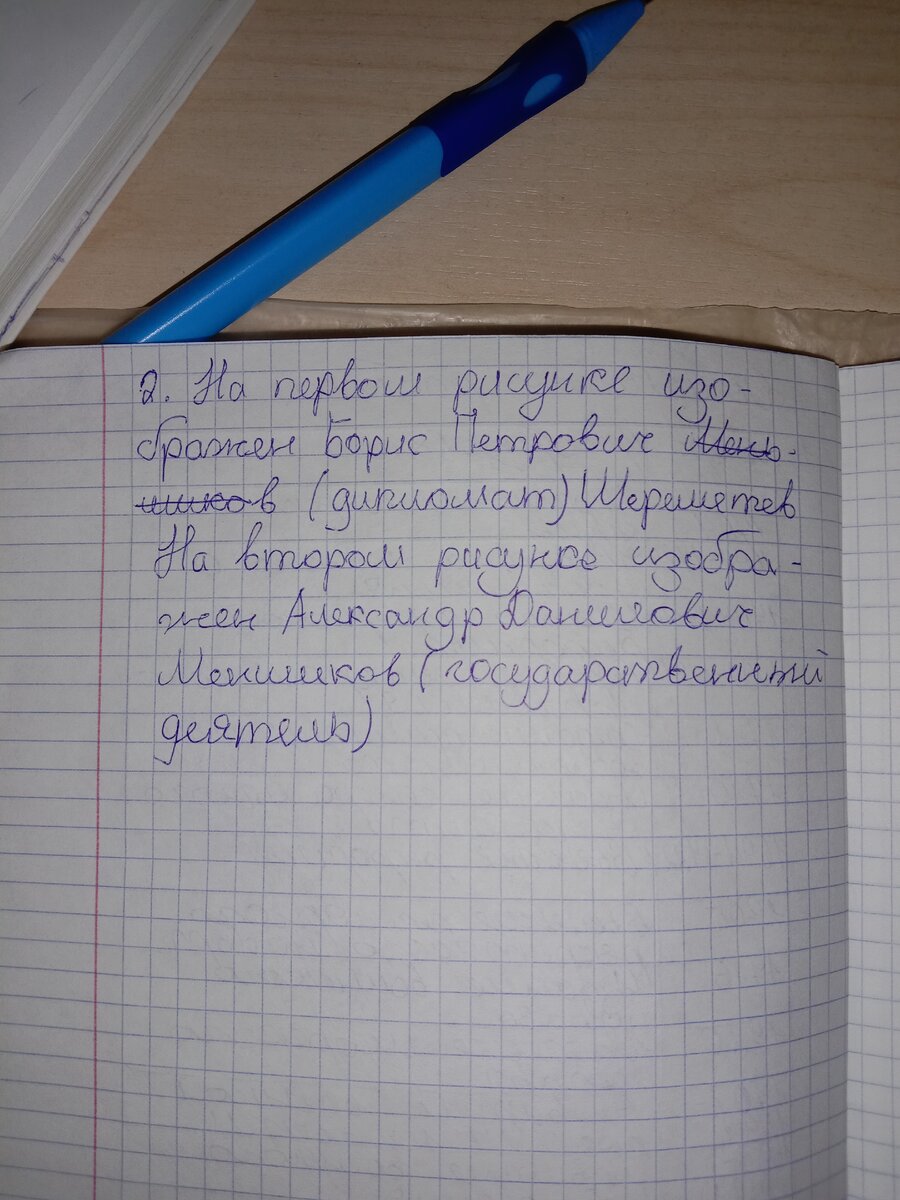 2. На первом рисунке изо-
бражен Борис Петрович Мень-
шиков (дипломат) Шереметев
На втором рисунке изобра-
жен Александр Данилович
Меншиков (государственный
деятель)